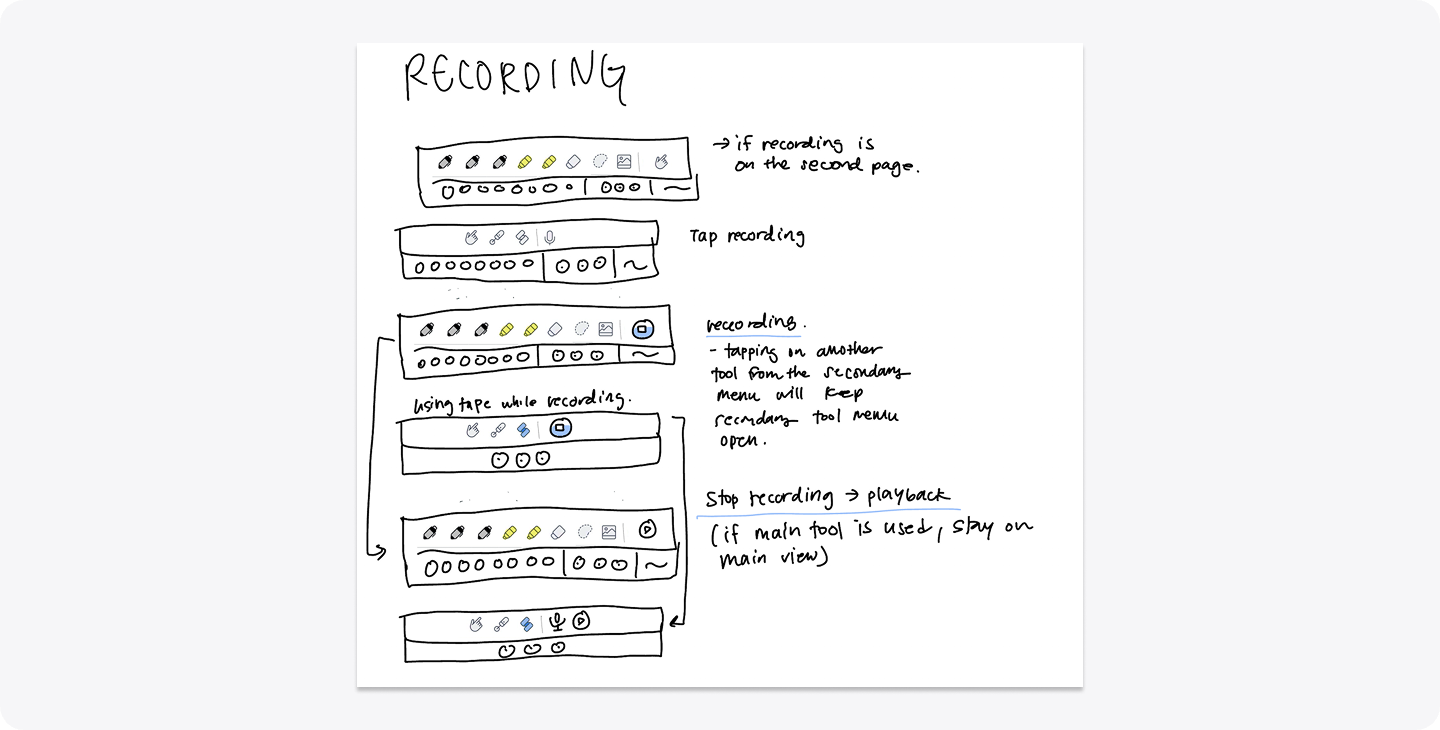 RECORDING
→ if recording is
on the second page.
Tap recording
recording.
- tapping on another
tool from the secondary
menu will keep
secondary tool menu
open.
using tape while recording.
Stop recording → playback
(if main tool is used, stay on
main view)